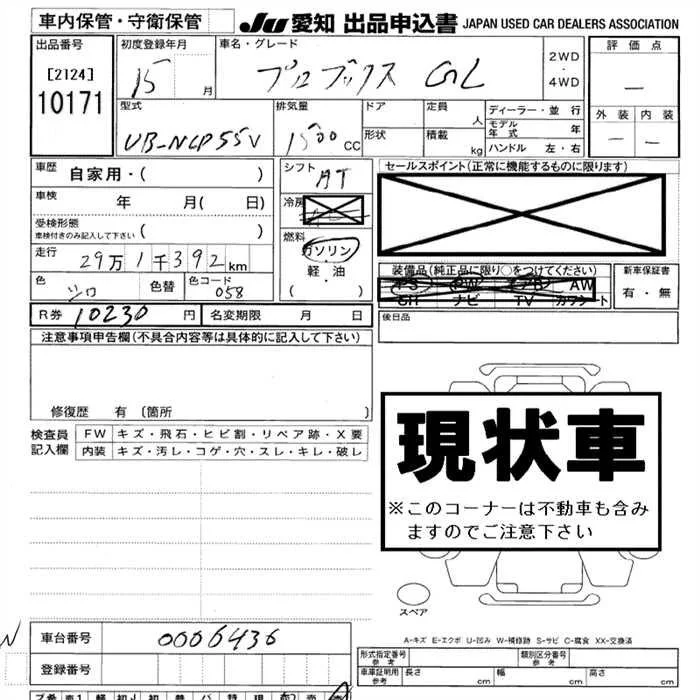 車内保管・守衛保管
JU 愛知 出品申込書 JAPAN USED CAR DEALERS ASSOCIATION
出品番号
[2124]
10171
初度登録年月
15 月
車名・グレード
プロボックス GL
2WD
・
4WD
評価点
—
外装 内装
— —
型式
UB-NCP55V
排気量
1500 CC
ドア
形状
定員 人
積載 kg
ディーラー・並行
モデル年式 年
ハンドル 左・右
車歴 自家用・( )
車検 年 月( 日)
受検形態
車検付きのみ記入して下さい ( )
走行 29万1千392km
色 シロ
色替
色コード 058
シフト AT
冷房
燃料
ガソリン
軽・油
( ・ )
セールスポイント(正常に機能するものに限ります)
装備品(純正品に限り○をつけてください)
PS PW エアB AW
SH ナビ TV カワシート
新車保証書
有・無
R券 10230 円
名変期限 月 日
後日品
注意事項申告欄(不具合内容等は具体的に記入して下さい)
修復歴 有 [箇所 ]
検査員
記入欄
FW キズ・飛石・ヒビ割・リペア跡・X要
内装 キズ・汚レ・コゲ・穴・スレ・キレ・破レ
現状車
※このコーナーは不動車も含み
ますのでご注意下さい
スペア
A-キズ E-エクボ U-凹み W-補修跡 S-サビ C-腐食 XX-交換済
車台番号 0006436
登録番号
形式指定番号
参考
類別区分番号
参考
車庫証明用
参考
長さ cm 幅 cm 高さ cm